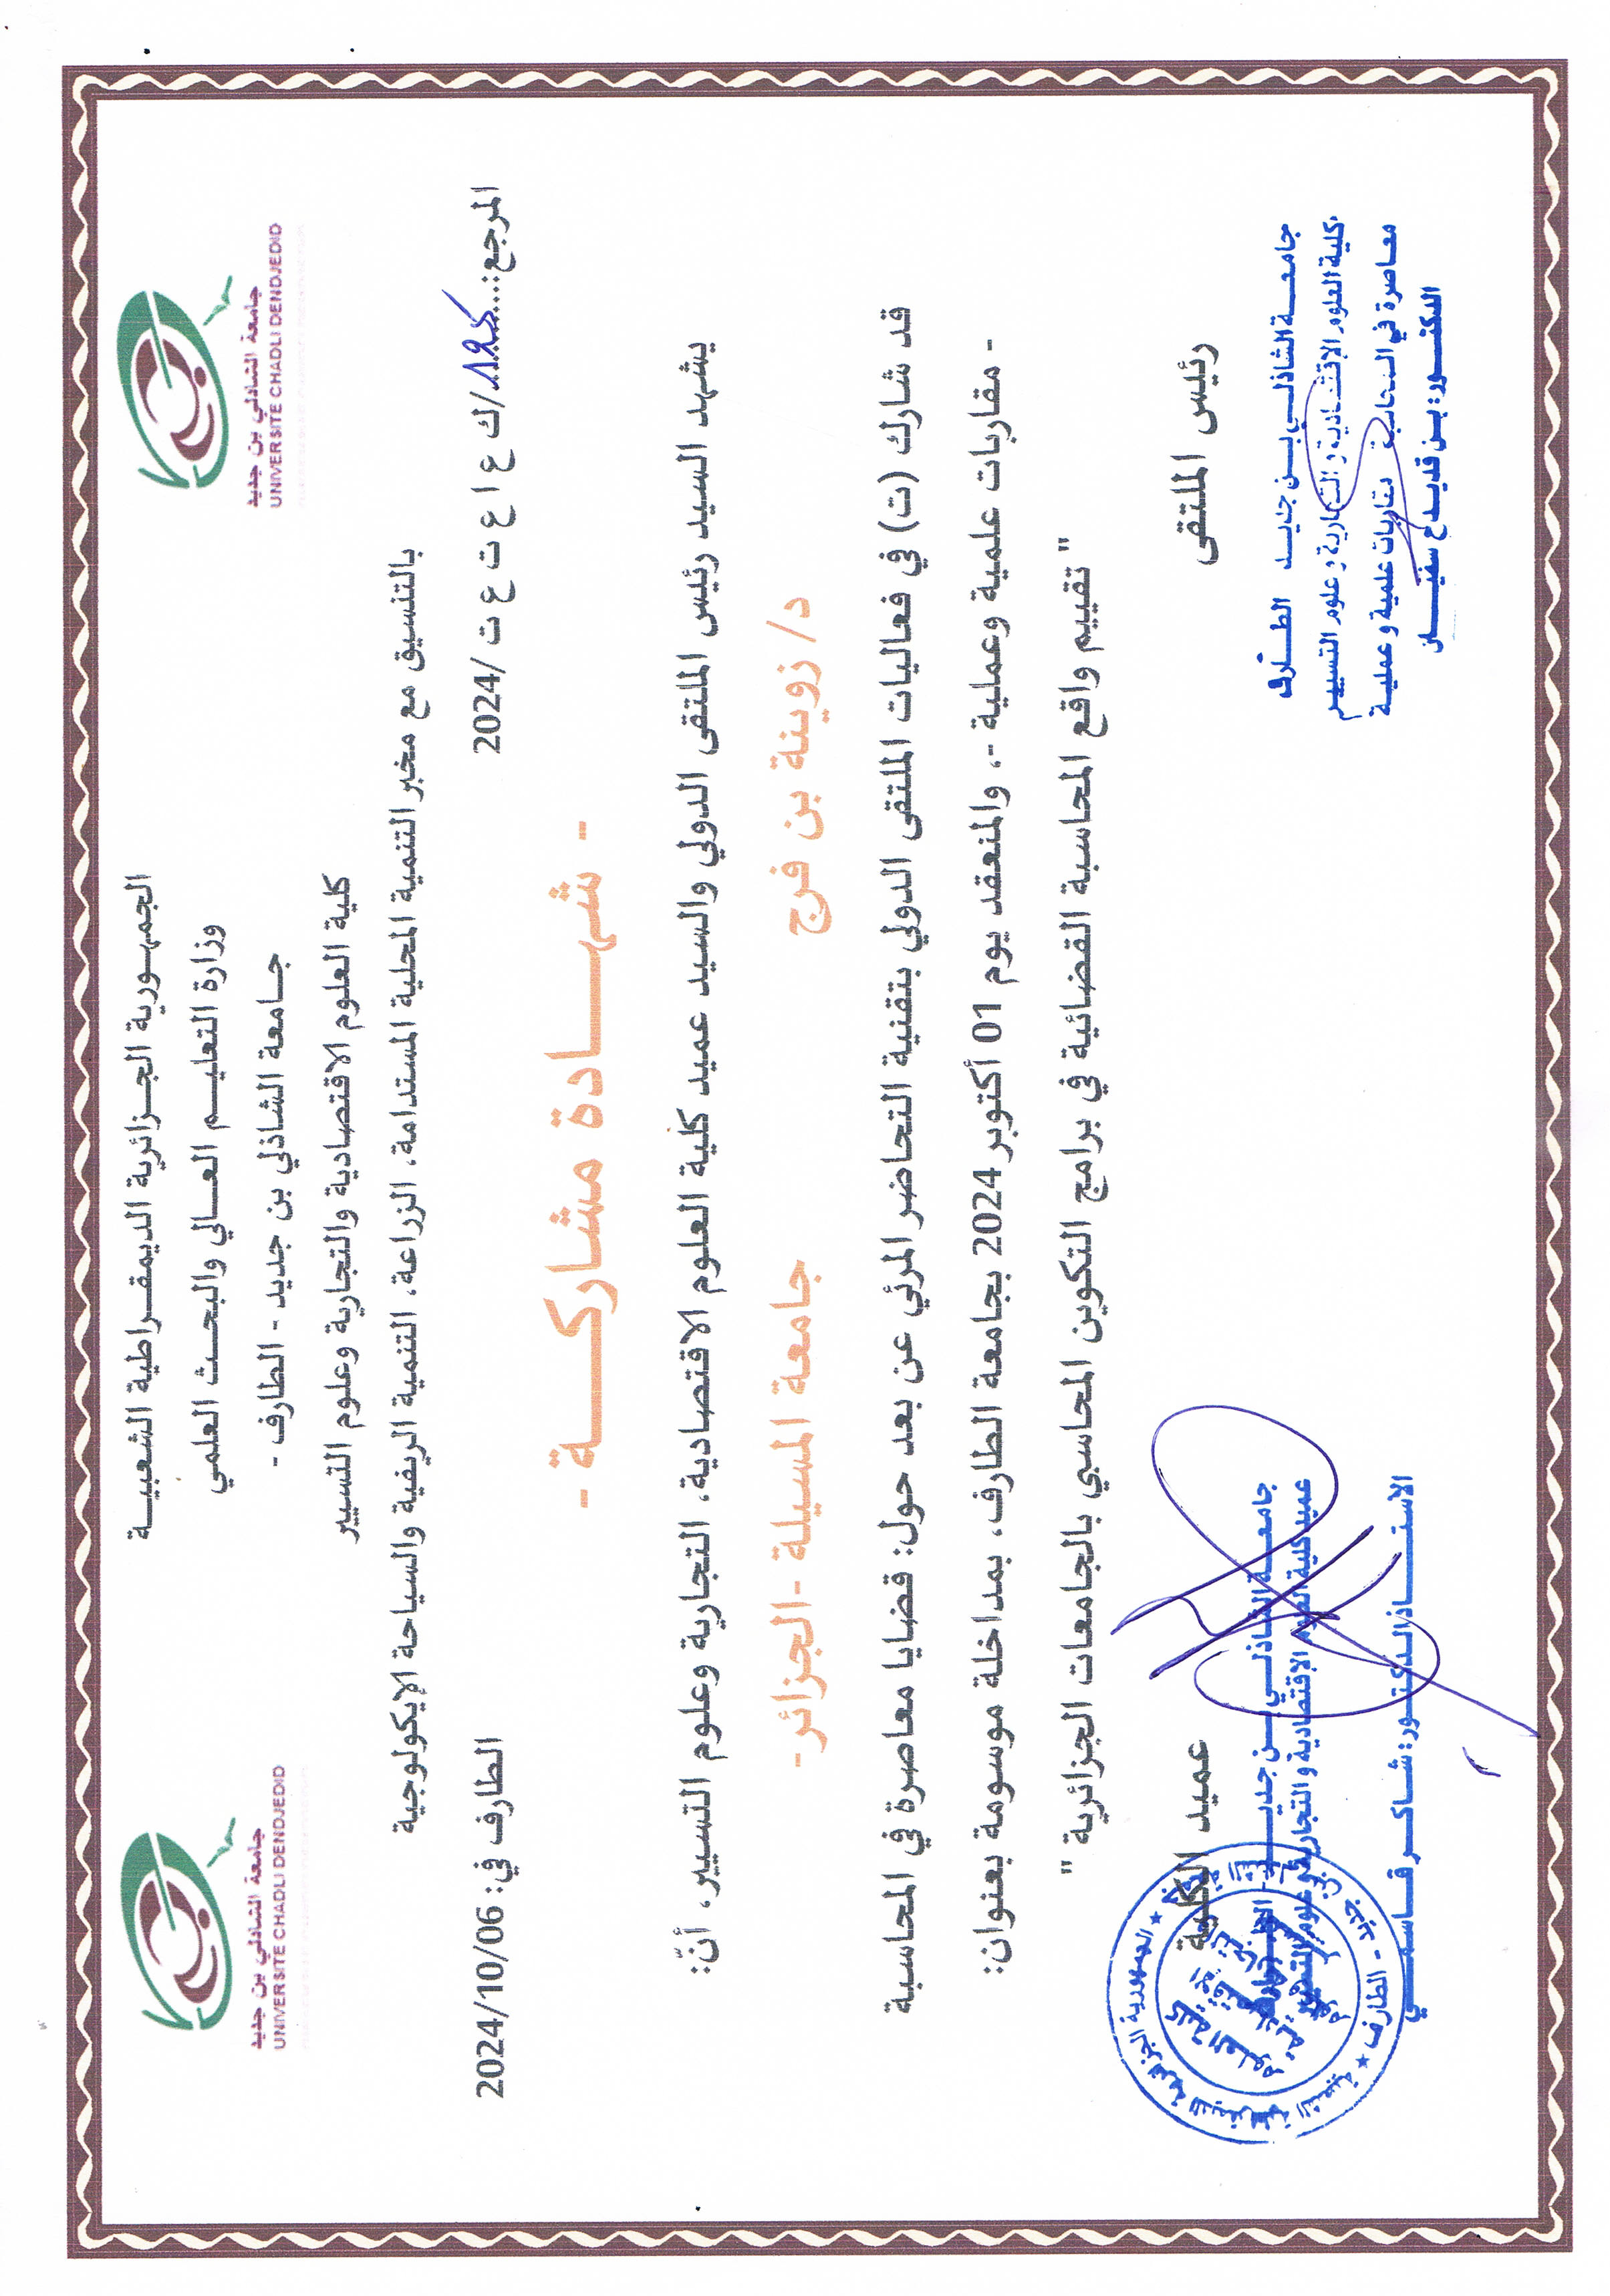 الجمهورية الجزائرية الديمقراطية الشعبية
وزارة التعليم العالي والبحث العلمي
جامعة الشاذلي بن جديد - الطارف -
كلية العلوم الاقتصادية والتجارية وعلوم التسيير
بالتنسيق مع مخبر التنمية المحلية المستدامة، الزراعة، التنمية الريفية والسياحة الإيكولوجية
جامعة الشاذلي بن جديد
UNIVERSITE CHADLI BENDJEDID
جامعة الشاذلي بن جديد
UNIVERSITE CHADLI BENDJEDID
المرجع:.../ك ع ا ع ت ع ت /2024
الطارف في: 2024/10/06
- شهادة مشاركة -
يشهد السيد رئيس الملتقى الدولي والسيد عميد كلية العلوم الاقتصادية، التجارية وعلوم التسيير، أنّ:
د/ زوينة بن فرج
جامعة المسيلة -الجزائر-
قد شارك (ت) في فعاليات الملتقى الدولي بتقنية التحاضر المرئي عن بعد حول: قضايا معاصرة في المحاسبة
- مقاربات علمية وعملية -، والمنعقد يوم 01 أكتوبر 2024 بجامعة الطارف، بمداخلة موسومة بعنوان:
" تقييم واقع المحاسبة القضائية في برامج التكوين المحاسبي بالجامعات الجزائرية "
رئيس الملتقى
جامعة الشاذلي بن جديد الطارف
كلية العلوم الإقتصادية و التجارية و علوم التسيير
معاصرة في المحاسبة مقاربات علمية و عملية
الدكتور: بن قديدح سفيان
عميد الكلية
جامعة الشاذلي بن جديد
عميد كلية العلوم الإقتصادية و التجارية و علوم التسيير
الاستاذ الدكتور: شاكر قاسمي